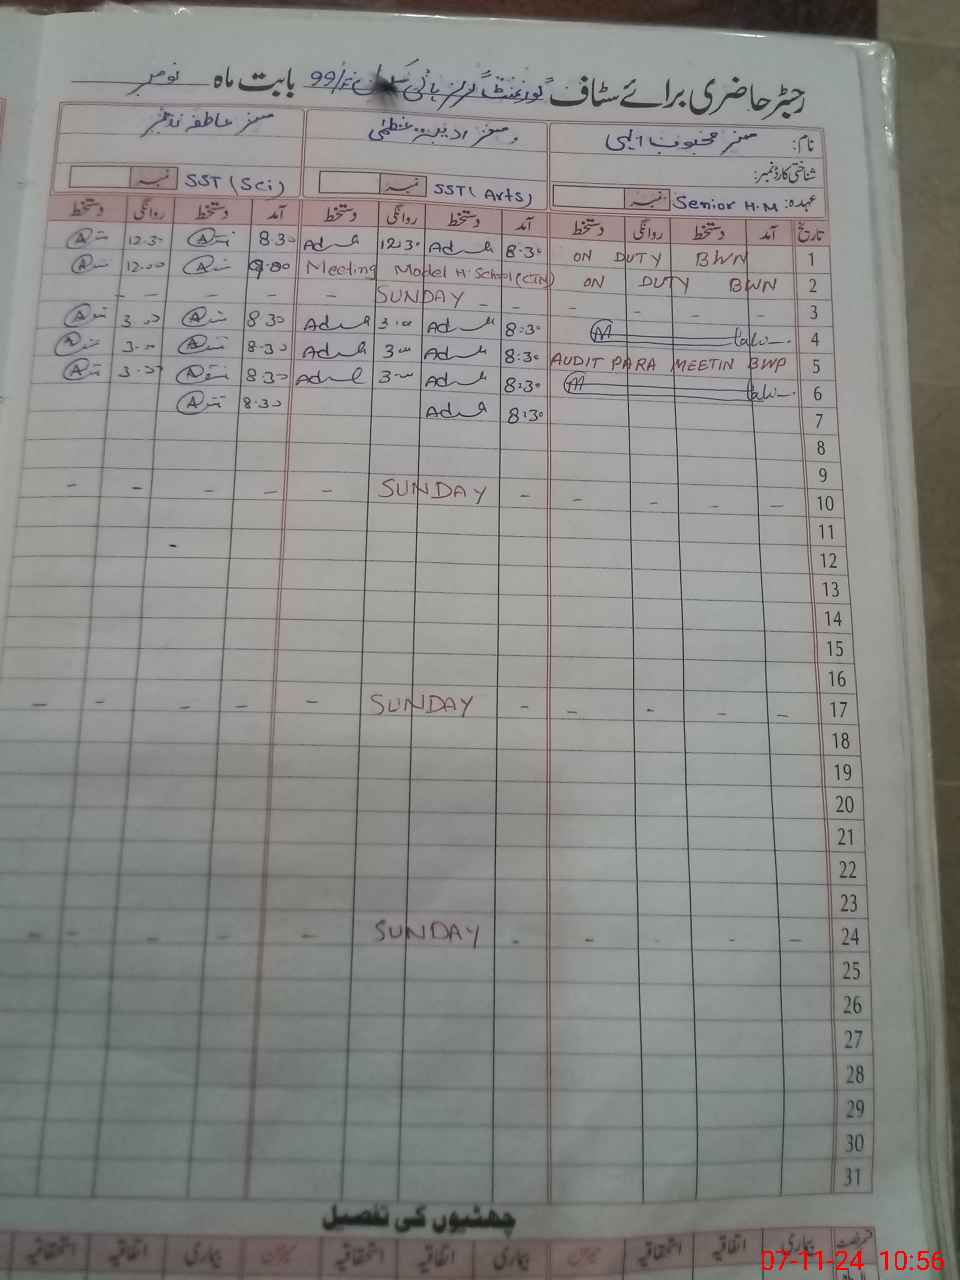 رجسٹر حاضری برائے سٹاف گورنمنٹ گرلز ہائی 99/F بابت ماہ نومبر
نام: مسز محبوب الہی مسز ادیبہ عظمٰی مسز عاطفہ
شناختی کارڈ نمبر:
عہدہ: Senior H.M نمبر SST (Arts) نمبر SST (Sci) نمبر
تاریخ آمد دستخط روانگی دستخط آمد دستخط روانگی دستخط آمد دستخط روانگی دستخط
1 ON DUTY BWN 8.30 12.30 8.30 12.30
2 ON DUTY BWN Meeting Model H. School (CTN) 9.00 12.00
3 - - - - - SUNDAY - - - - -
4 8:30 3.00 8.30 3.00
5 AUDIT PARA MEETIN BWP 8:30 3.00 8.30 3.00
6 8:30 3.00 8.30 3.00
7 8:30 8.30
8
9
10 - - - - - SUNDAY - - - - -
11
12
13
14
15
16
17 - - - - - SUNDAY - - - - -
18
19
20
21
22
23
24 - - - - - SUNDAY - - - - -
25
26
27
28
29
30
31
چھٹیوں کی تفصیل
بیماری اتفاقیہ استحقاقیہ بیماری اتفاقیہ استحقاقیہ بیماری اتفاقیہ استحقاقیہ
07-11-24 10:56